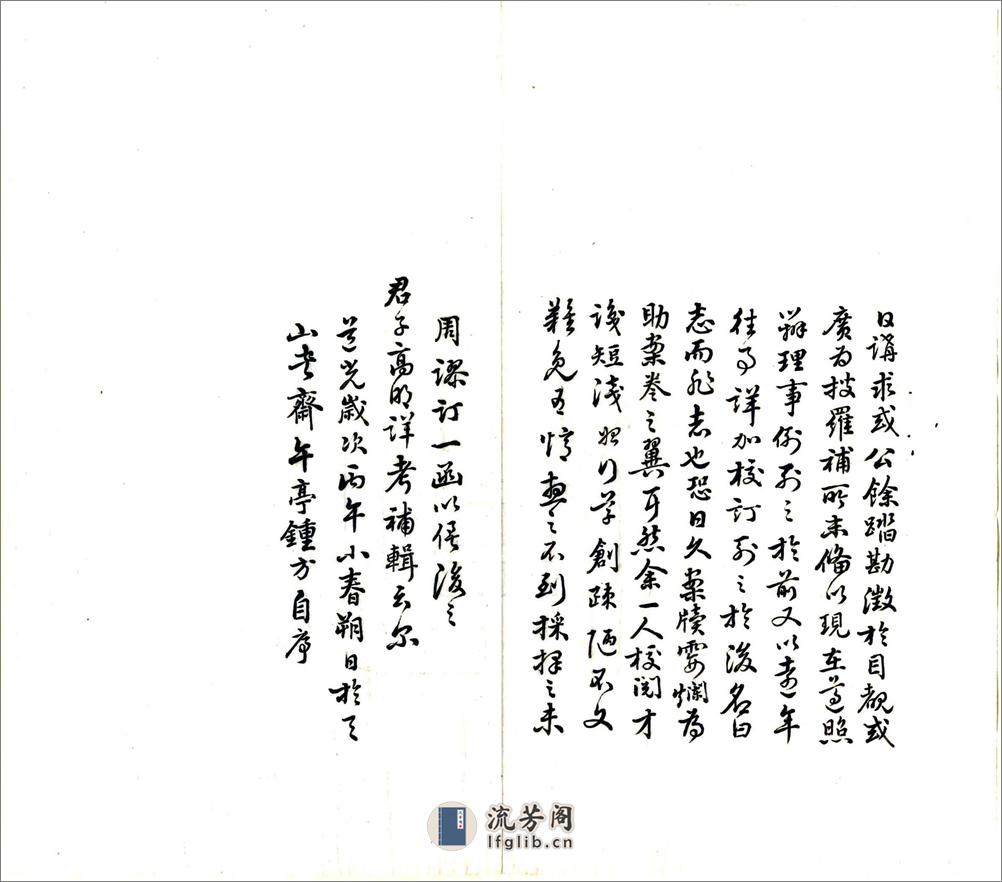 日講求或公餘踏勘徵於目覩或
廣為搜羅補所未備以現在遵照
辦理事例列之於前又以遠年
往事詳加校訂列之於後名曰
志而非志也恐日久案牘霉爛為
助案卷之翼耳然余一人校閱才
淺短淺 學創疎陋不文
難免有 之不到採擇之未
周謬訂一函以俟後之
君子高明詳考補輯云尔
道光歲次丙午小春朔日於天
山書齋午亭鍾方自序
流芳阁
lfglib.cn